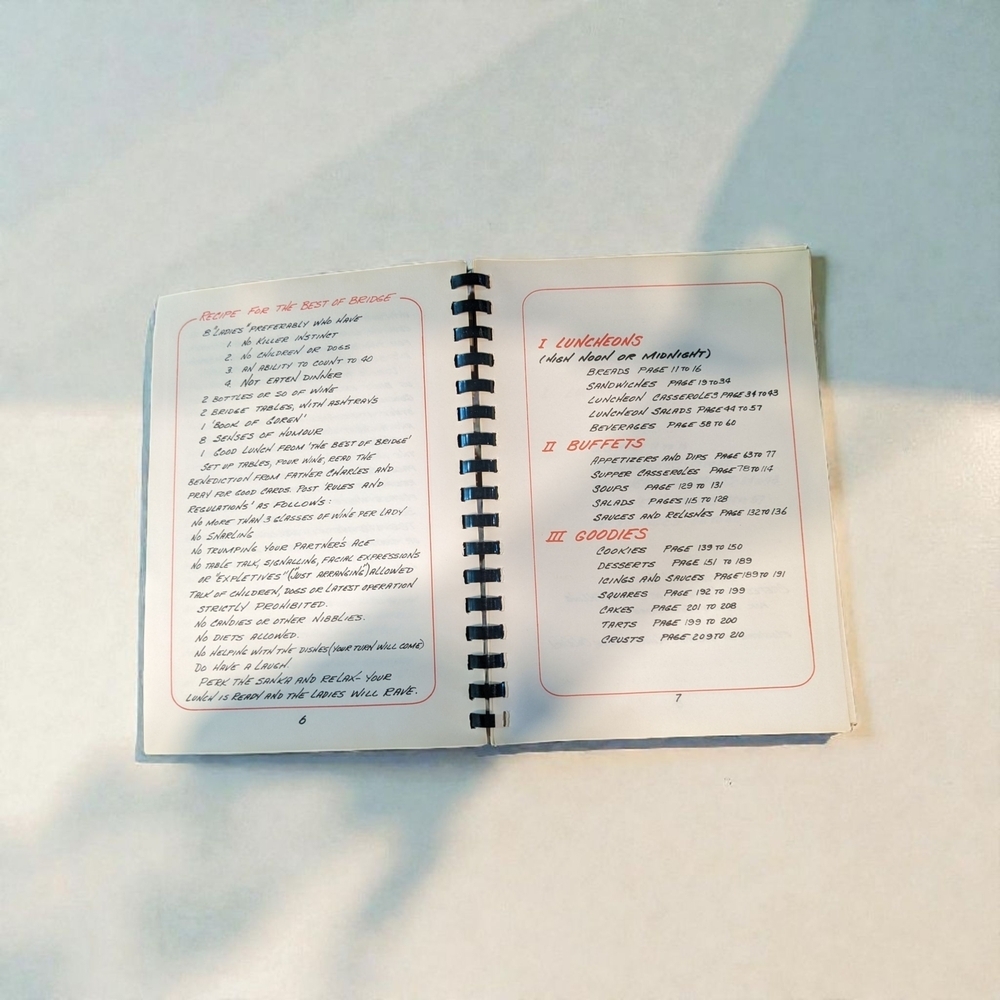 RECIPE FOR THE BEST OF BRIDGE
8 "LADIES" PREFERABLY WHO HAVE
1. NO KILLER INSTINCT
2. NO CHILDREN OR DOGS
3. AN ABILITY TO COUNT TO 40
4. NOT EATEN DINNER
2 BOTTLES OR SO OF WINE
2 BRIDGE TABLES, WITH ASHTRAYS
1 "BOOK OF GOREN"
8 SENSES OF HUMOUR
1 GOOD LUNCH FROM 'THE BEST OF BRIDGE'
SET UP TABLES, POUR WINE, READ THE
BENEDICTION FROM FATHER CHARLES AND
PRAY FOR GOOD CARDS. POST 'RULES AND
REGULATIONS' AS FOLLOWS:
NO MORE THAN 3 GLASSES OF WINE PER LADY
NO SNARLING
NO TRUMPING YOUR PARTNER'S ACE
NO TABLE TALK, SIGNALLING, FACIAL EXPRESSIONS
OR "EXPLETIVES" ("JUST ARRANGING") ALLOWED
TALK OF CHILDREN, DOGS OR LATEST OPERATION
STRICTLY PROHIBITED.
NO CANDIES OR OTHER NIBBLIES.
NO DIETS ALLOWED.
NO HELPING WITH THE DISHES (YOUR TURN WILL COME)
DO HAVE A LAUGH.
PERK THE SANKA AND RELAX- YOUR
LUNCH IS READY AND THE LADIES WILL RAVE.
6
I LUNCHEONS
(HIGH NOON OR MIDNIGHT)
BREADS PAGE 11 TO 16
SANDWICHES PAGE 19 TO 34
LUNCHEON CASSEROLES PAGE 34 TO 43
LUNCHEON SALADS PAGE 44 TO 57
BEVERAGES PAGE 58 TO 60
II BUFFETS
APPETIZERS AND DIPS PAGE 63 TO 77
SUPPER CASSEROLES PAGE 78 TO 114
SOUPS PAGE 129 TO 131
SALADS PAGES 115 TO 128
SAUCES AND RELISHES PAGE 132 TO 136
III GOODIES
COOKIES PAGE 139 TO 150
DESSERTS PAGE 151 TO 189
ICINGS AND SAUCES PAGE 189 TO 191
SQUARES PAGE 192 TO 199
CAKES PAGE 201 TO 208
TARTS PAGE 199 TO 200
CRUSTS PAGE 209 TO 210
7